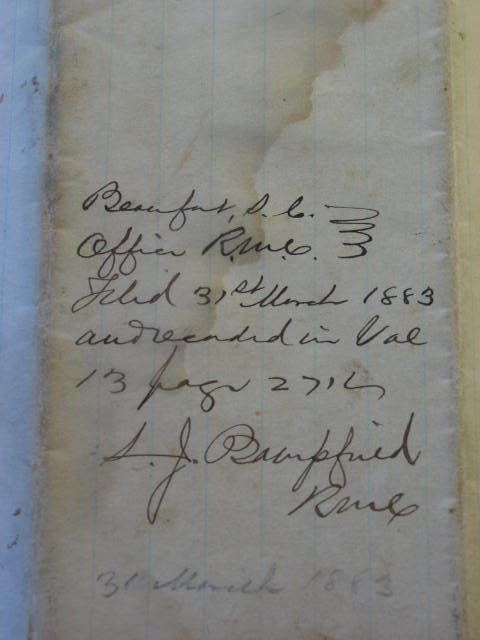 Beaufort, S. C.
Office R.M.C.
Filed 31st March 1883
and recorded in Vol
13 page
S. J. Bampfield
RMC
31 March 1883